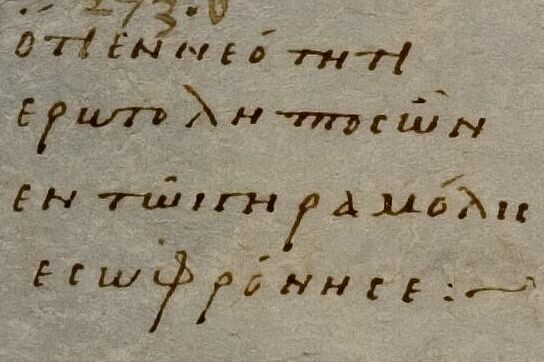 273.υ
ὅτι ἐν νεότητι
ἐρωτόληπτος ὢν
ἐν τῶι γήρα μόλις
ἐσωφρόνησε :~